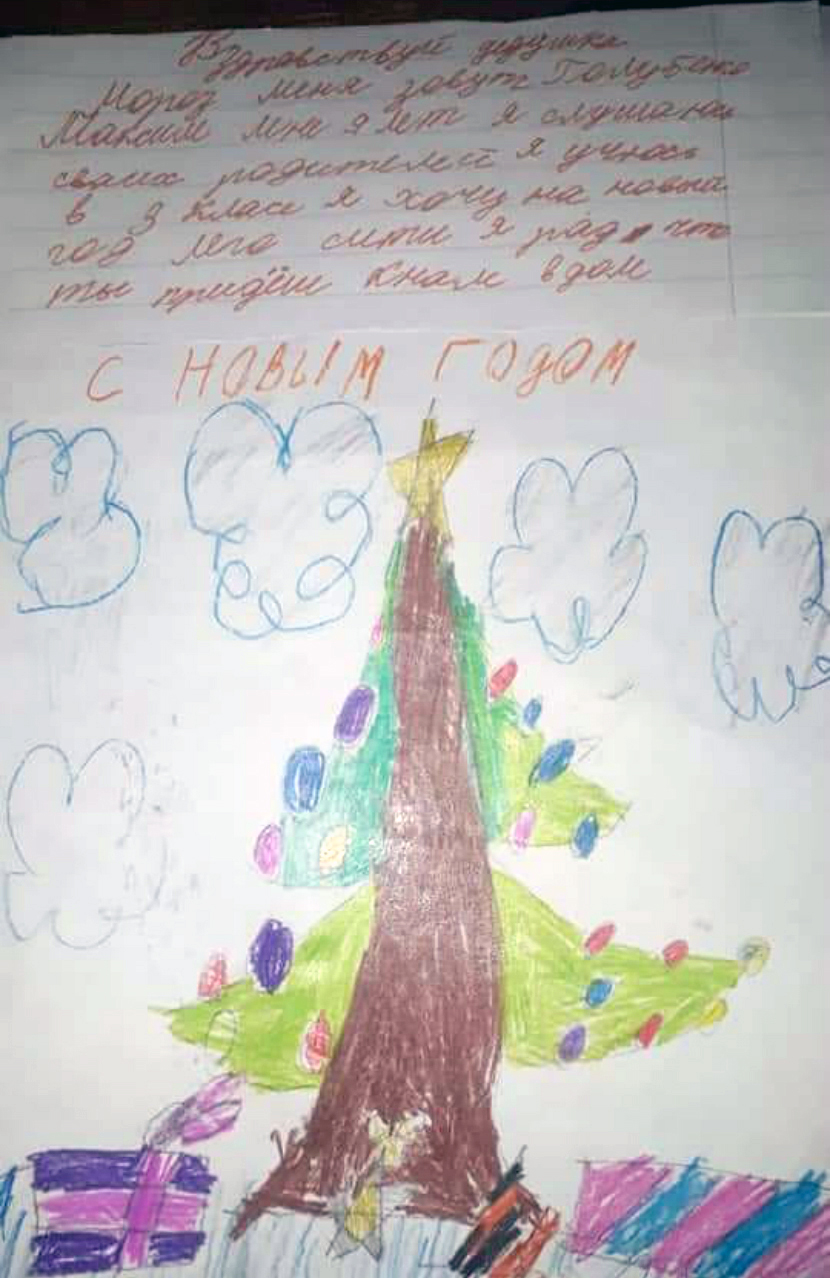 Здравствуй дедушка
Мороз меня зовут Голубенко
Максим мне 9 лет я слушаюсь
своих родителей я учюсь
в 3 класе я хочу на новый
год лего сити я рад что
ты придёш кнам вдом
С НОВЫМ ГОДОМ